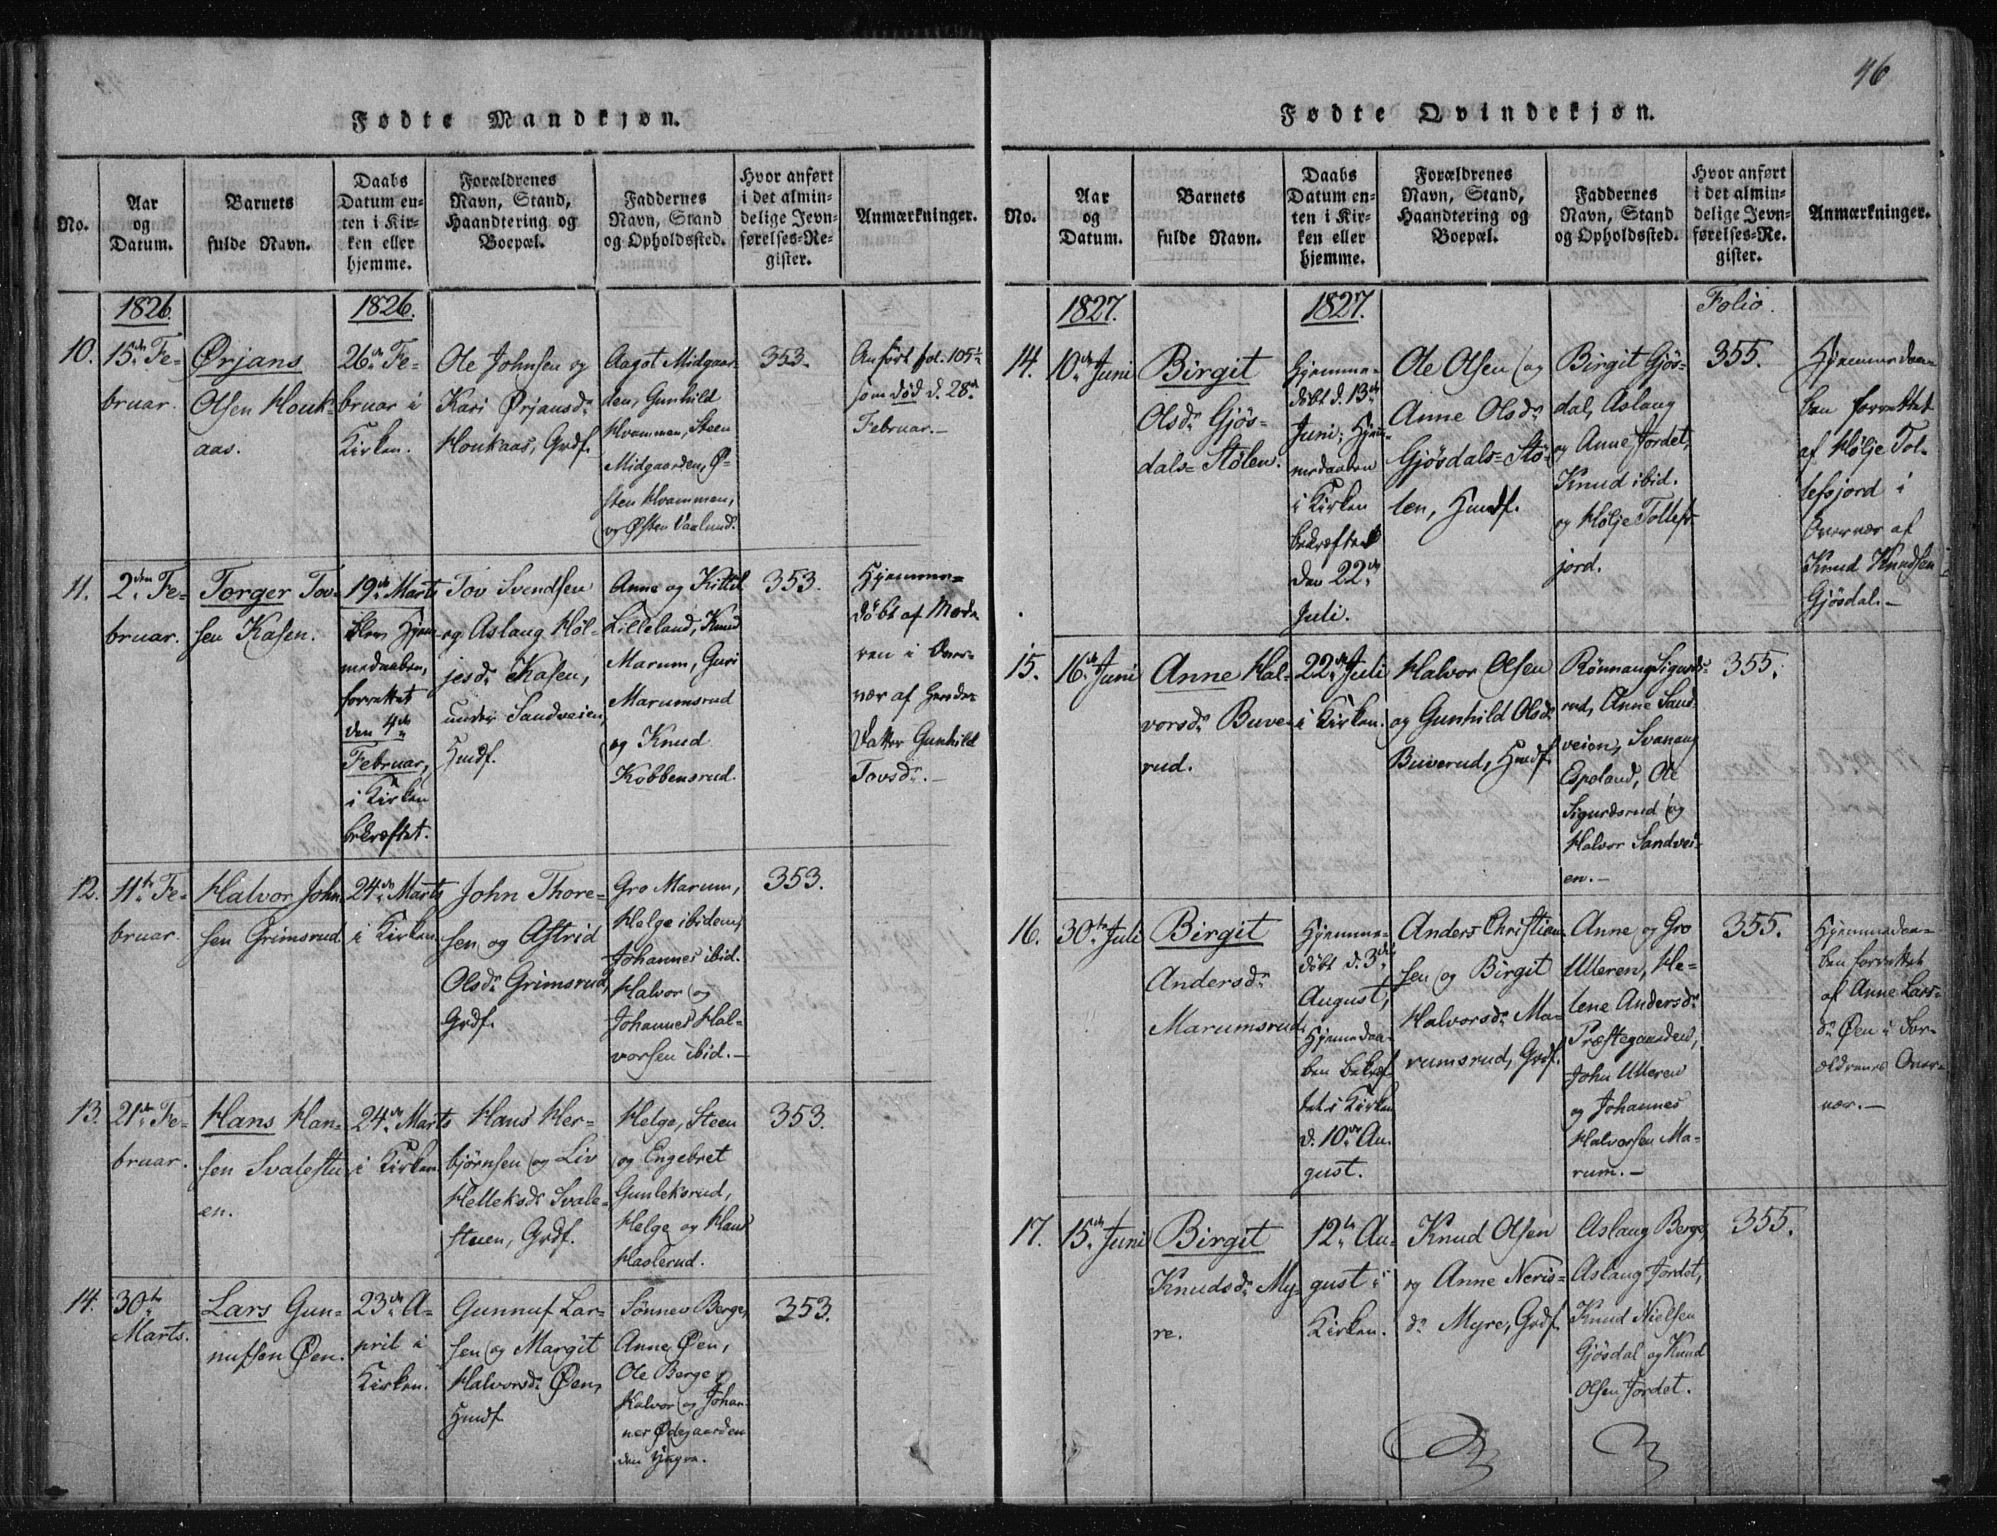 46
Fødte Mandkjøn.
No.
Aar
og
Datum.
Barnets
fulde Navn.
Daabs
Datum en-
ten i Kir-
ken eller
hjemme.
Forældrenes
Navn, Stand,
Haandtering og
Boepæl.
Faddernes
Navn, Stand
og Opholdssted.
Hvor anført
i det almin-
delige Jevn-
førelses-Re-
gister.
Anmærkninger.
1826.
1826.
10.
15de Fe-
bruar.
Ørjans
Olsen Houk-
aas.
26de Fe-
bruar i
Kirken.
Ole Johnsen og
Kari Ørjansdr
Houkaas, Grdf.
Aagot Midgaar-
den, Gunhild
Hvammen, Steen
Midgaarden, Ø-
sten Hvammen,
og Østen Vaalund.
353.
Anført fol. 105½
som død d. 28de
Februar.-
11.
2den Fe-
bruar.
Torger Tov-
sen Kasen.
19de Marts
blev Hjem-
medaaben,
forrettet
den 4de
Februar,
i Kirken
bekræftet.
Tov Svendsen
og Aslaug Høl-
jesdr Kasen,
under Sandveien,
Hmdf.
Anne og Kittil
Lilleland, Knud
Marum, Guri
Marumsrud
og Knud
Kobbensrud.
353.
Hjemme-
døbt af Mode-
ren i Over-
vær af hendes
Datter Gunhild
Tovsdr.-
12.
11te Fe-
bruar.
Halvor John-
sen Grimsrud.
24de Marts
i Kirken.
John Thore-
sen og Astrid
Olsdr Grimsrud,
Grdf.
Gro Marum,
Helge ibidem,
Johannes ibid.
Halvor og
Johannes Hal-
vorsen ibid.-
353.
13.
21de Fe-
bruar.
Hans Han-
sen Svalestu-
en.
24de Marts
i Kirken
Hans Her-
bjørnsen og Liv
Helleksdr Svale-
stuen, Grdf.
Helge, Steen
og Engebret
Gunleksrud,
Helge og Hans
Haslerud.
353.
14.
30te
Marts.
Lars Gun-
nufsen Øen.
23de A-
pril i
Kirken.
Gunnuf Lar-
sen og Margit
Halvorsdr Øen,
Hmdf.
Sønnev Berge,
Anne Øen,
Ole Berge,
Halvor og Johan-
nes Ødegaarden
den Yngre.
353.
Fødte Qvindekjøn.
No.
Aar
og
Datum.
Barnets
fulde Navn.
Daabs
Datum en-
ten i Kir-
ken eller
hjemme.
Forældrenes
Navn, Stand,
Haandtering og
Boepæl.
Faddernes
Navn, Stand
og Opholdssted.
Hvor anført
i det almin-
delige Jevn-
førelses-Re-
gister.
Anmærkninger.
1827.
1827.
Folio.
14.
10de Juni
Birgit
Olsdr Gjös-
dals-Stølen.
Hjemme-
døbt d. 13de
Juni; Hjem-
medaaben
i Kirken
bekræftet
den 22de
Juli.
Ole Olsen og
Anne Olsdr
Gjösdals-Stø-
len, Hmdf.
Birgit Gjös-
dal, Aslaug
og Anne Jordet,
Knud ibid.
og Hølje Tollefs-
jord.
355.
Hjemmedaa-
ben forrettet
af Hølje Tol-
lefsjord i
Overvær af
Knud Knudsen
Gjösdal.-
15.
16de Juni
Anne Hal-
vorsdr Buve-
rud.
22de Juli
i Kirken.
Halvor Olsen
og Gunhild Olsdr
Buverud, Hmdf.
Rönnaug Sigurds-
rud, Anne Sand-
veien, Svanaug
Espeland, Ole
Sigurdsrud og
Halvor Sandvei-
en.-
355.
16.
30te Juli
Birgit
Andersdr
Marumsrud.
Hjemme-
døbt d. 3die
August,
Hjemmedaa-
ben bekræf-
tet i Kirken
d. 10de Au-
gust.
Anders Christian-
sen og Birgit
Halvorsdr Ma-
rumsrud, Grdf.
Anne og Gro
Ulleren, He-
lene Andersdr
Præstegaarden,
John Ulleren
og Johannes
Halvorsen Ma-
rum.-
355.
Hjemmedaa-
ben forrettet
af Anne Lars-
dr Øen i For-
ældrenes Over-
vær.-
17.
15de Juni
Birgit
Knudsdr My-
re.
12te Au-
gust i
Kirken.
Knud Olsen
og Anne Neris-
dr Myre, Grdf.
Aslaug Berge,
Aslaug Jordet,
Knud Nielsen
Gjösdal og Knud
Olsen Jordet.
355.